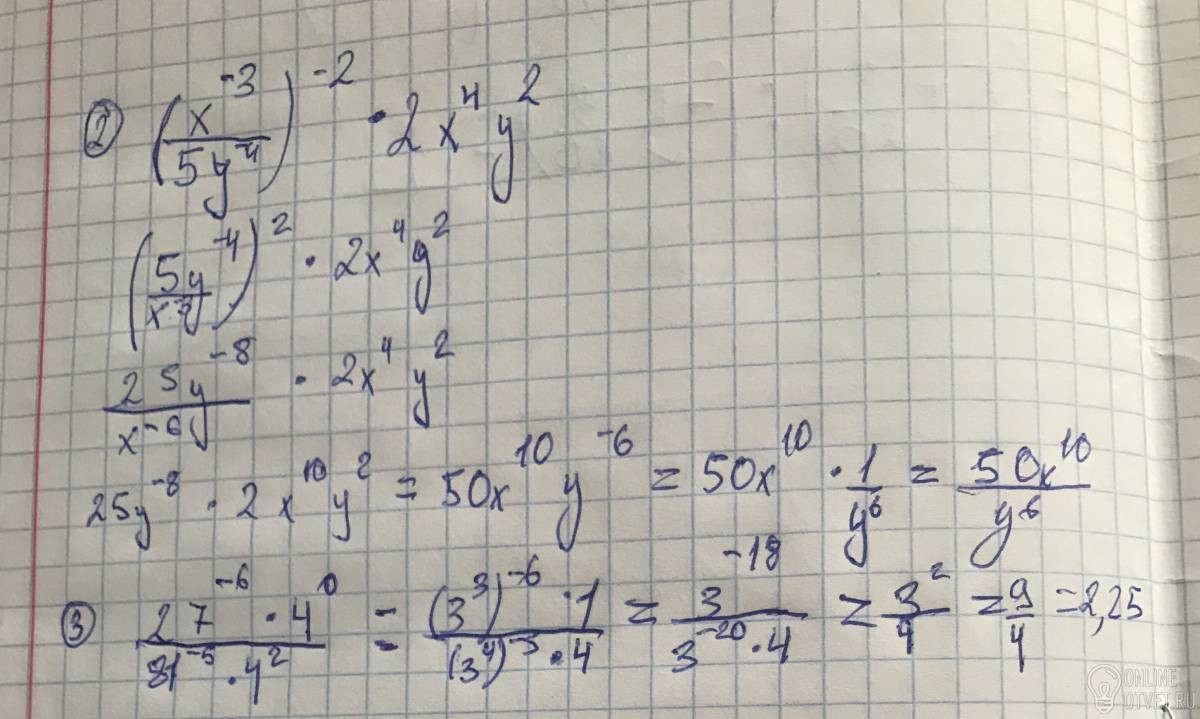 ② (x^-3 / 5y^-4)^-2 · 2x^4 y^2
(5y^-4 / x^-3)^2 · 2x^4 y^2
25y^-8 / x^-6 · 2x^4 y^2
25y^-8 · 2x^10 y^2 = 50x^10 y^-6 = 50x^10 · 1/y^6 = 50x^10 / y^6
③ 27^-6 · 4^0 / 81^-5 · 4^2 = (3^3)^-6 · 1 / (3^4)^-5 · 4 = 3^-18 / 3^-20 · 4 = 3^2 / 4 = 9/4 = 2,25
ONLINE
OTVET.RU